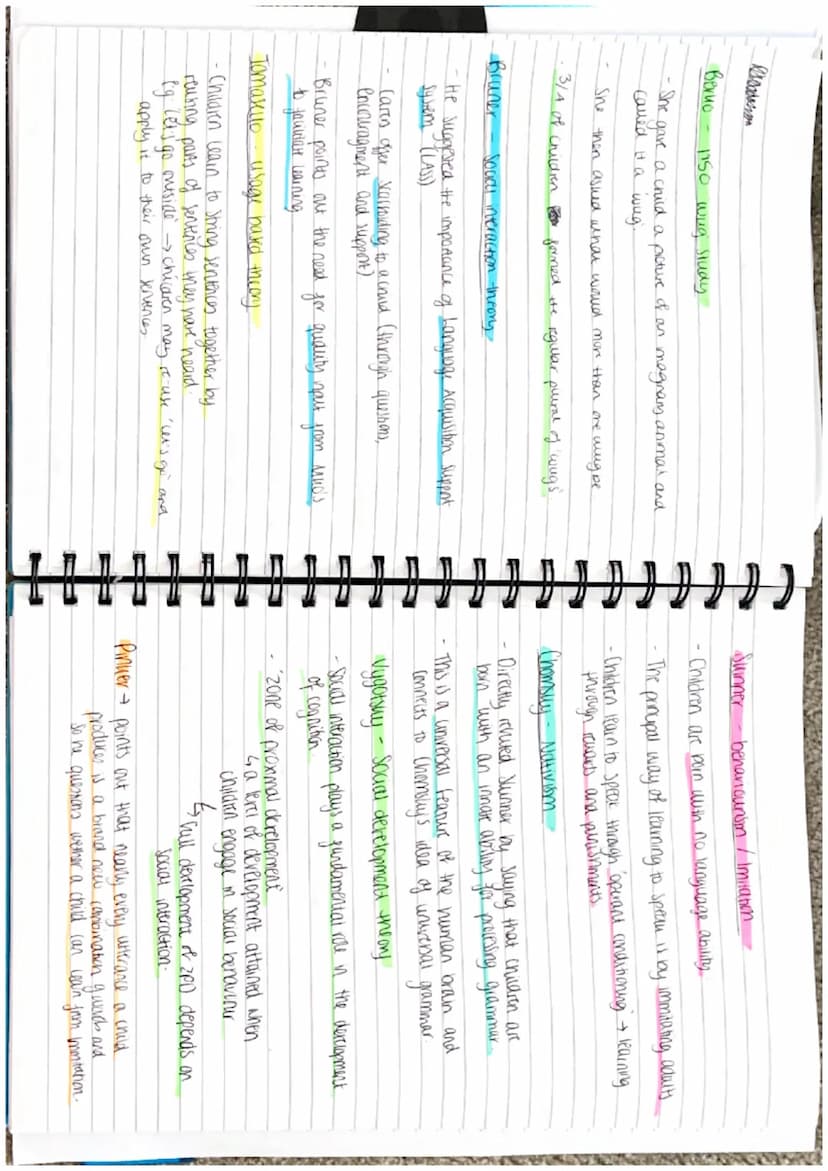 Berko - 1950 wug study
- She gave a child a picture of an imaginary animal and
called it a wug.
- She then asked what would more than one wug be
- 3/4 of children formed the regular plural of 'wugs'
Bruner - Social interaction theory
- He suggested the importance of Language Acquisition Support
System (LASS)
- Carers offer scaffolding to a child (through questions,
encouragment and support)
- Bruner points out the need for quality input from MKO's
to facilitate learning
Tomasello - usage based theory
- Children learn to string sentences together by
reusing parts of sentences they have heard.
Eg 'Let's go outside' → children may re-use 'let's go' and
apply it to their own sentences
Skinner - behaviourism / Imitation
- Children are born with no language ability
- The principal way of learning to speak is by immitating adults
- Children learn to speak through 'operant conditioning' → learning
through rewards and punishments
Chomsky - Nativism
- Directly refuted Skinner by saying that children are
born with an innate ability for processing grammar
- This is a universal feature of the human brain and
connects to Chomsky's idea of universal grammar.
Vygotsky - Social development theory
- Social interaction plays a fundamental role in the development
of cognition
- 'Zone of proximal development'
↳ a level of development attained when
children engage in social behaviour
↳ Full development of ZPD depends on
social interaction.
Pinker → points out that nearly every utterance a child
produces is a brand new combination of words and
so he questions wether a child can learn from immitation.